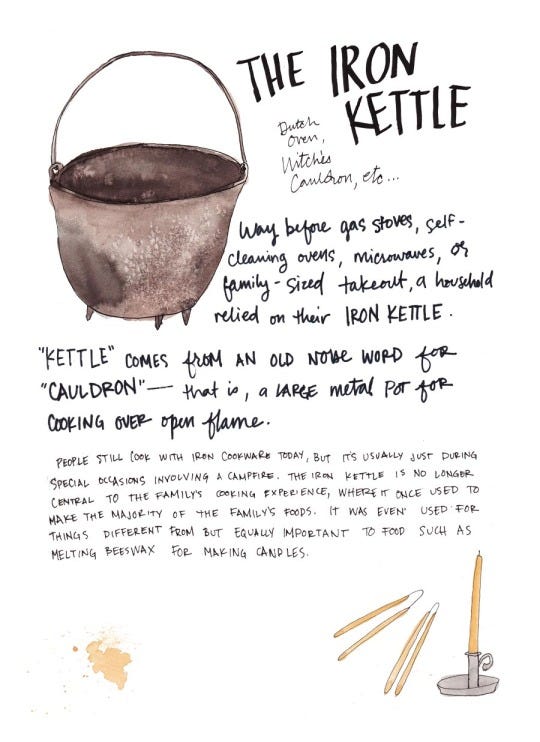 THE IRON
KETTLE
Dutch
Oven,
Witches
Cauldron, etc...
Way before gas stoves, self-
cleaning ovens, microwaves, or
family-sized takeout, a household
relied on their IRON KETTLE.
"KETTLE" COMES from AN OLD NORSE WORD for
"CAULDRON" — that is, a LARGE metal Pot for
COOKING OVER open flame.
PEOPLE STILL COOK WITH IRON COOKWARE TODAY, BUT IT'S USUALLY JUST DURING
SPECIAL OCCASIONS INVOLVING A CAMPFIRE. THE IRON KETTLE IS NO LONGER
CENTRAL TO THE FAMILY'S COOKING EXPERIENCE, WHERE IT ONCE USED TO
MAKE THE MAJORITY OF THE FAMILY'S FOODS. IT WAS EVEN USED FOR
THINGS DIFFERENT FROM BUT EQUALLY IMPORTANT TO FOOD SUCH AS
MELTING BEESWAX FOR MAKING CANDLES.